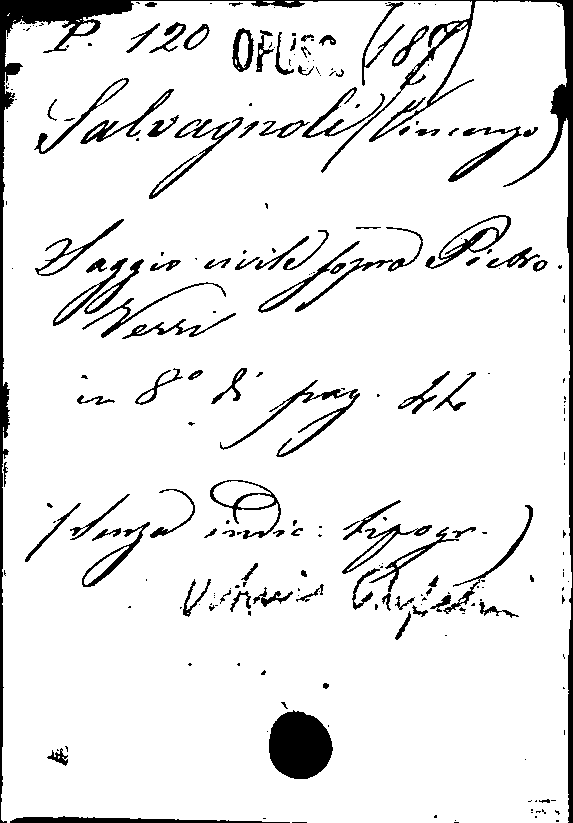 P. 120 OPUSC. (187
Salvagnoli (Vincenzo)
Saggio civile sopra Pietro
Verri
in 8° di pag. 44
(senza indic: tipogr.)